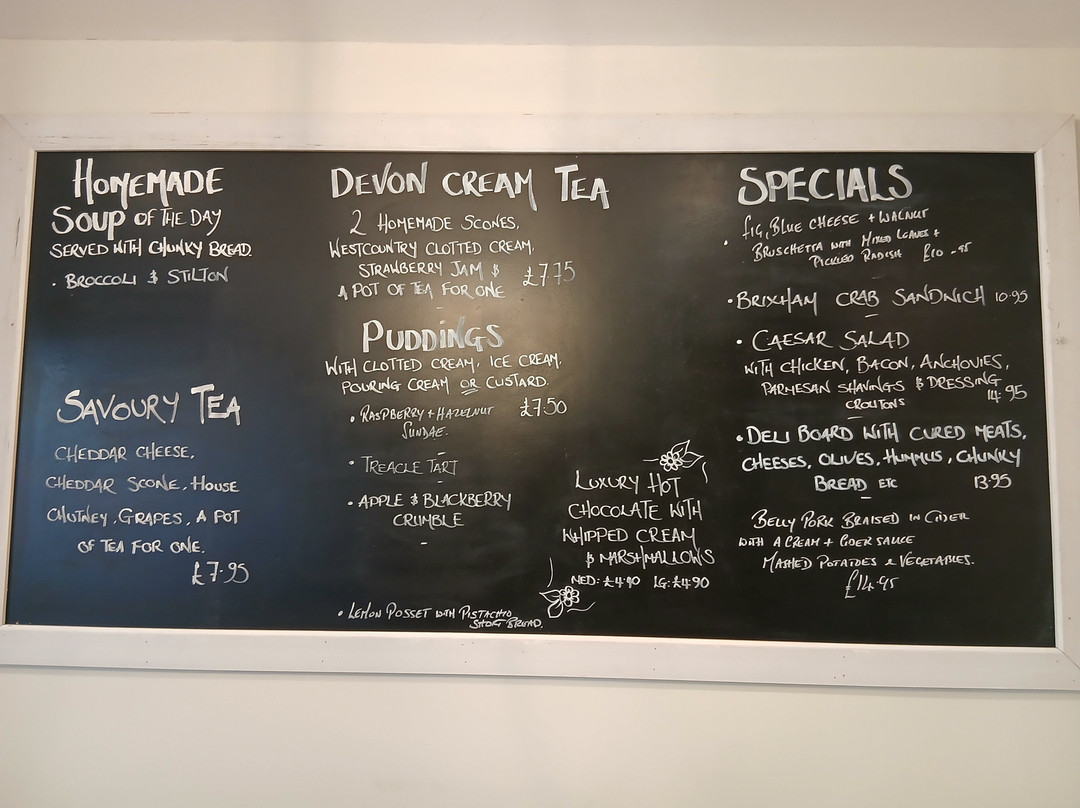 HOMEMADE
SOUP OF THE DAY
SERVED WITH CHUNKY BREAD.
• BROCCOLI & STILTON
SAVOURY TEA
CHEDDAR CHEESE,
CHEDDAR SCONE, HOUSE
CHUTNEY, GRAPES, A POT
OF TEA FOR ONE.
£7-95
DEVON CREAM TEA
2 HOMEMADE SCONES,
WESTCOUNTRY CLOTTED CREAM,
STRAWBERRY JAM &
A POT OF TEA FOR ONE £7.75
PUDDINGS
WITH CLOTTED CREAM, ICE CREAM,
POURING CREAM OR CUSTARD.
• RASPBERRY + HAZELNUT £7.50
SUNDAE.
• TREACLE TART
• APPLE & BLACKBERRY
CRUMBLE
• LEMON POSSET WITH PISTACHIO
SHORT BREAD.
LUXURY HOT
CHOCOLATE WITH
WHIPPED CREAM
& MARSHMALLOWS
MED: £4.40 LG: £4.90
SPECIALS
• FIG, BLUE CHEESE + WALNUT
BRUSCHETTA WITH MIXED LEAVES +
PICKLED RADISH £10-95
• BRIXHAM CRAB SANDWICH 10.95
• CAESAR SALAD
WITH CHICKEN, BACON, ANCHOVIES,
PARMESAN SHAVINGS & DRESSING
CROUTONS 14.95
• DELI BOARD WITH CURED MEATS,
CHEESES, OLIVES, HUMMUS, CHUNKY
BREAD ETC 13.95
BELLY PORK BRAISED IN CIDER
WITH A CREAM + CIDER SAUCE
MASHED POTATOES & VEGETABLES.
£14.95